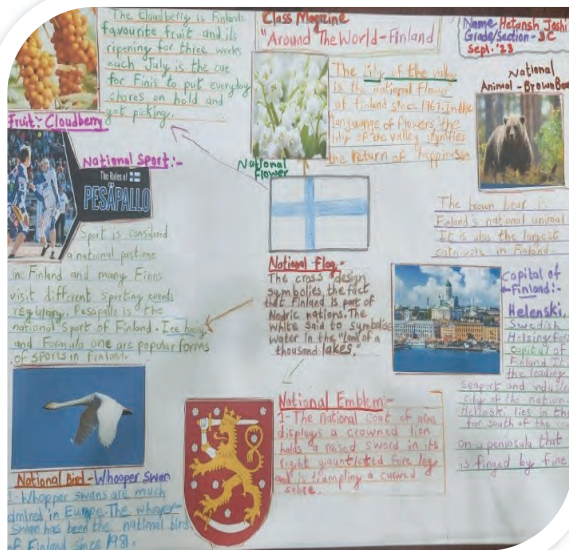 The Cloudberry is Finlands
favourite fruit and its
ripening for three weeks
each July is the cue
for Finis to put everyday
chores on hold and
get picking.
Fruit:- Cloudberry
Class Magazine
"Around The World - Finland
Name - Hetansh Joshi
Grade/Section - 3C
Sept. '23
The lily of the valley
is the national flower
of finland since 1967. In the
language of flowers, the
lily of the valley signifies
the return of happiness
National
Flower
National
Animal - Brown Bear
The brown bear is
Finland's national animal
It's also the largest
carnivore in Finland
National Sport:-
The Rules of
PESÄPALLO
Sport is considered
a national pastime
in Finland and many Finns
visit different sporting events
regularly. Pesapallo is the
national sport of Finland. Ice hockey
and Formula one are popular forms
of sports in Finland.
National Flag:-
The cross design
symbolies the fact
that Finland is part of
Nodric nations. The
white said to symbolise
water in the "land of a
thousand lakes."
Capital of
Finland:-
Helenski,
Swedish
Helsingfors
capital of
Finland it
the leading
seaport and
city of the nation
Helenski lies in the
far south of the
on a peninsula that
is finged by fine
National Emblem:-
1- The national coat of
displays a crowned lion
holds a raised sword in its
right gauntleted fore leg
is trampling a curved
sabre.
National Bird - Whooper Swan
1- Whopper swans are much
admired in Europe. The whooper
swan has been the national bird
of Finland since 1981.